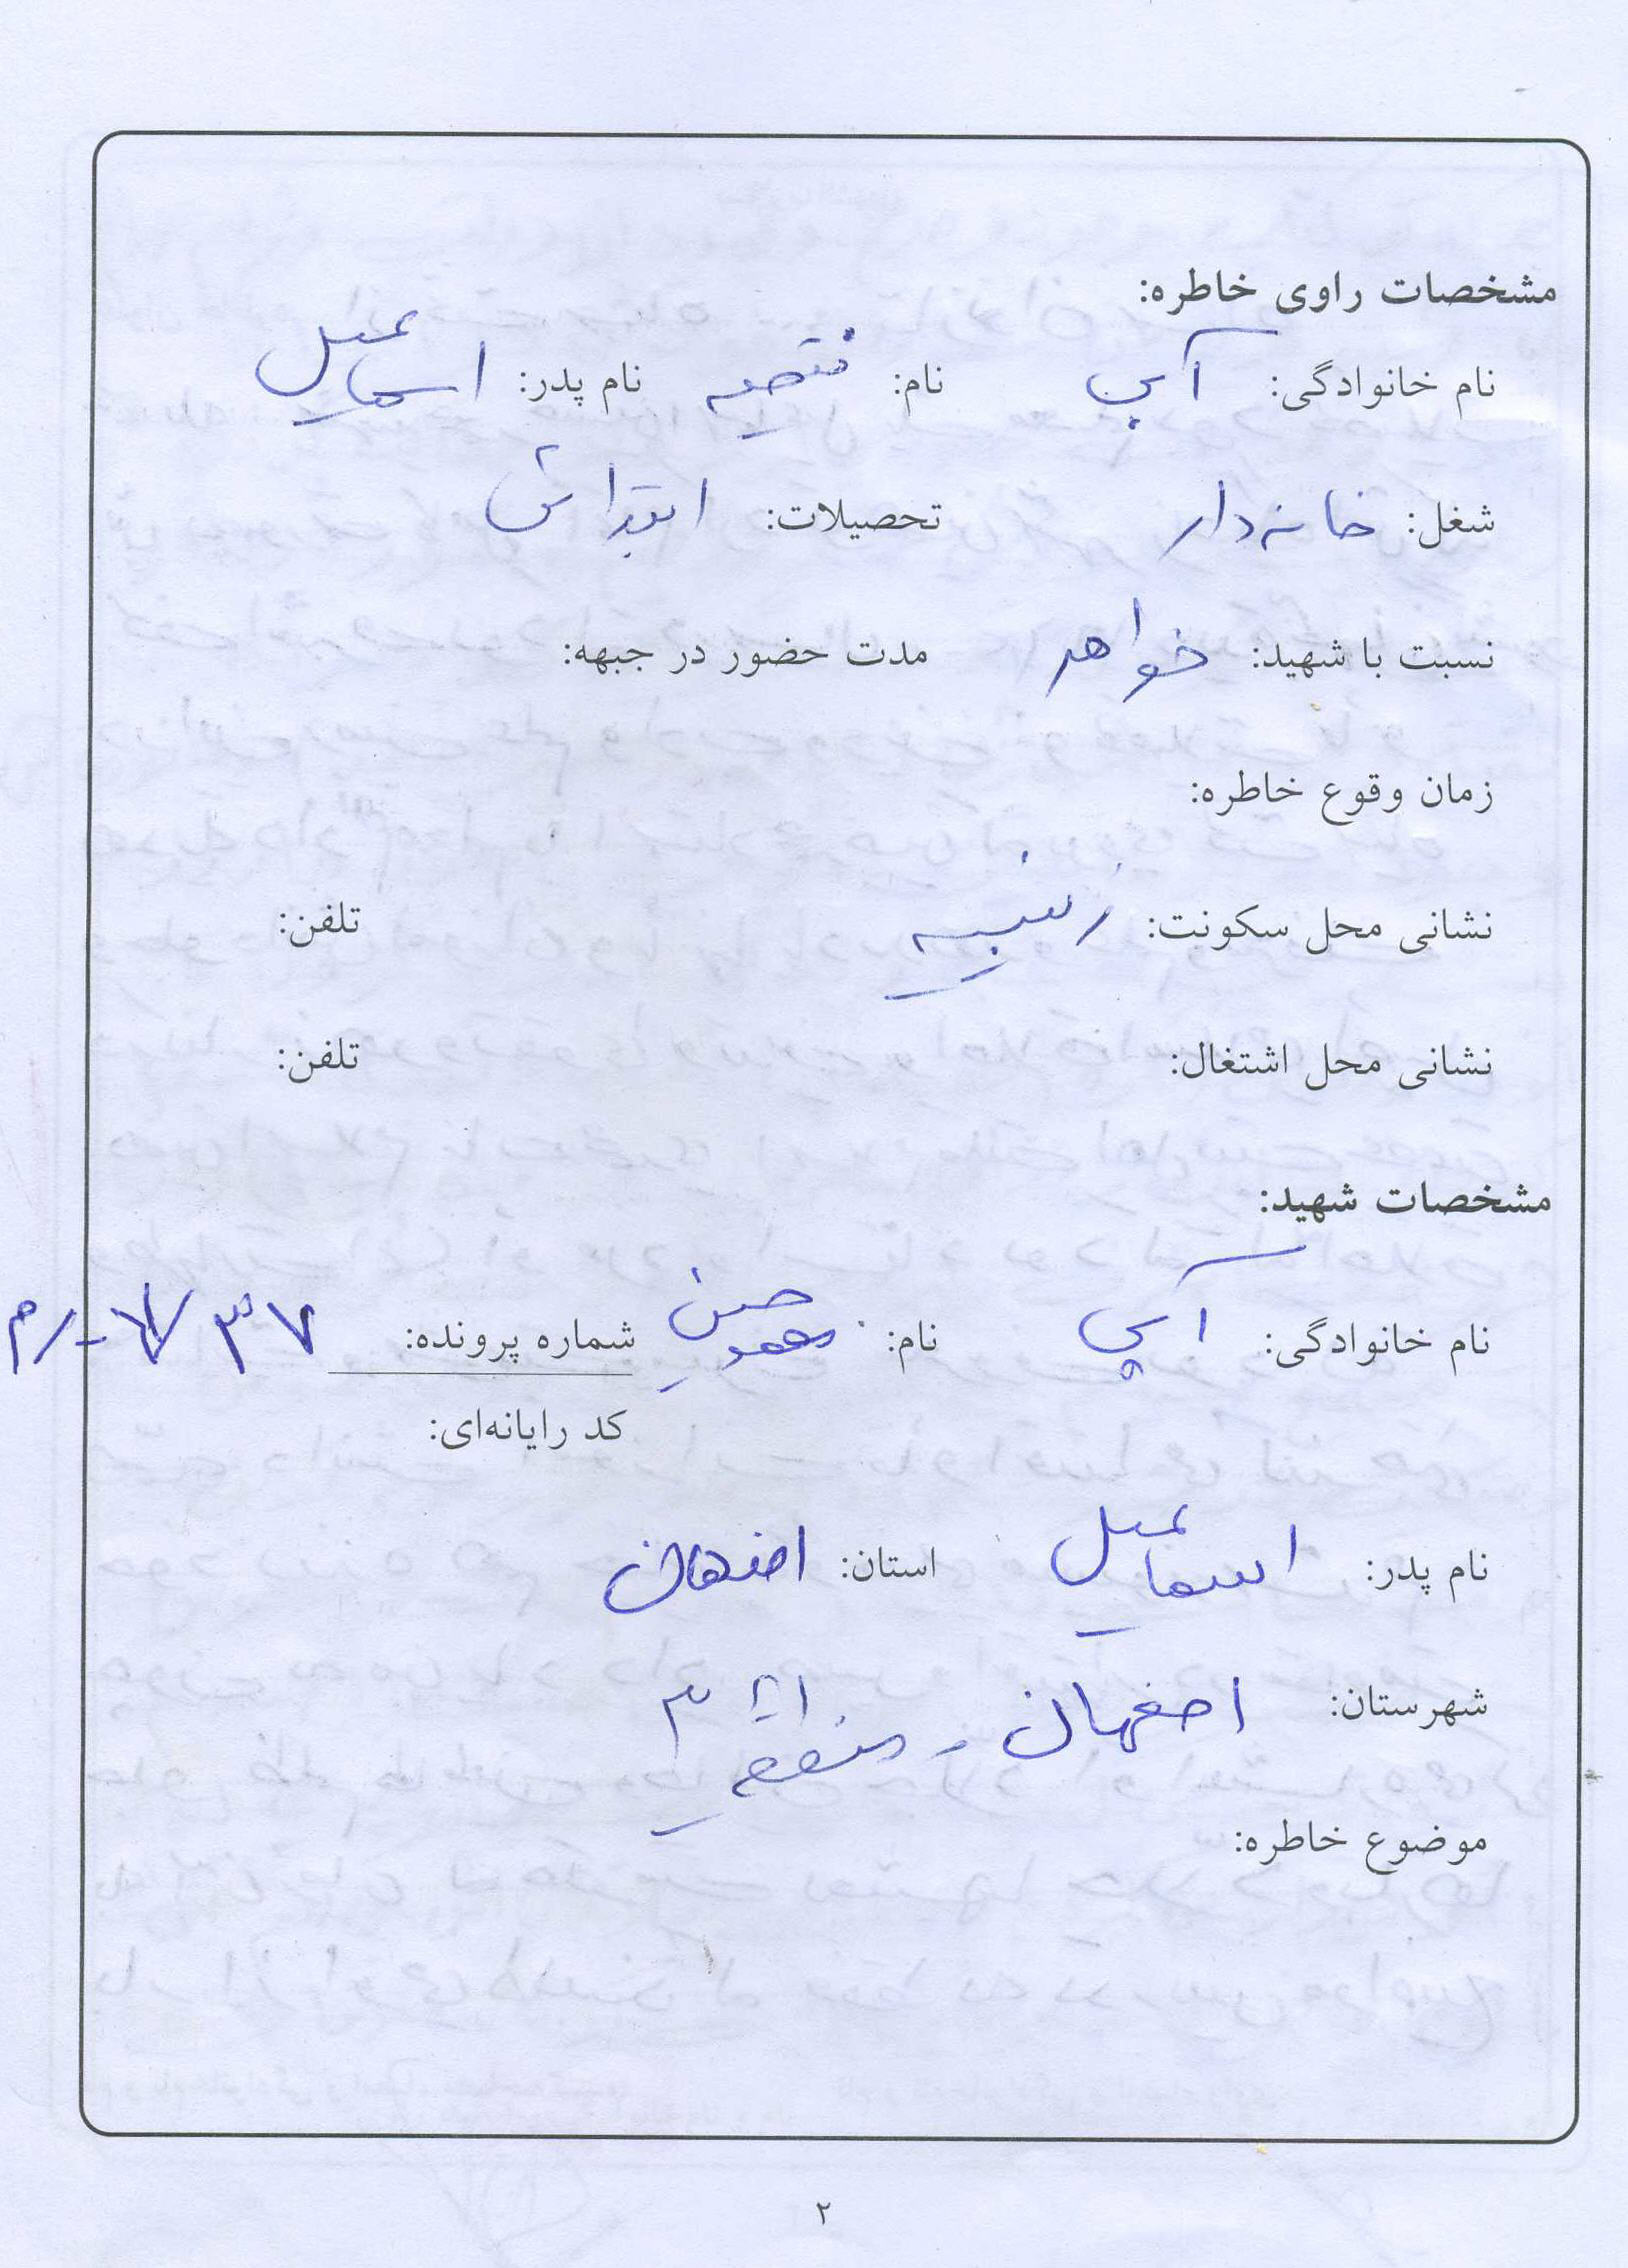 مشخصات راوی خاطره:
نام خانوادگی: آپی نام: نام پدر: اسماعیل
شغل: خانه‌دار تحصیلات: ابتدائی
نسبت با شهید: خواهر مدت حضور در جبهه:
زمان وقوع خاطره:
نشانی محل سکونت: زینبیه تلفن:
نشانی محل اشتغال: تلفن:
مشخصات شهید:
نام خانوادگی: آپی نام: شماره پرونده:
کد رایانه‌ای:
نام پدر: اسماعیل استان: اصفهان
شهرستان: اصفهان - منطقه ۳
موضوع خاطره:
۲